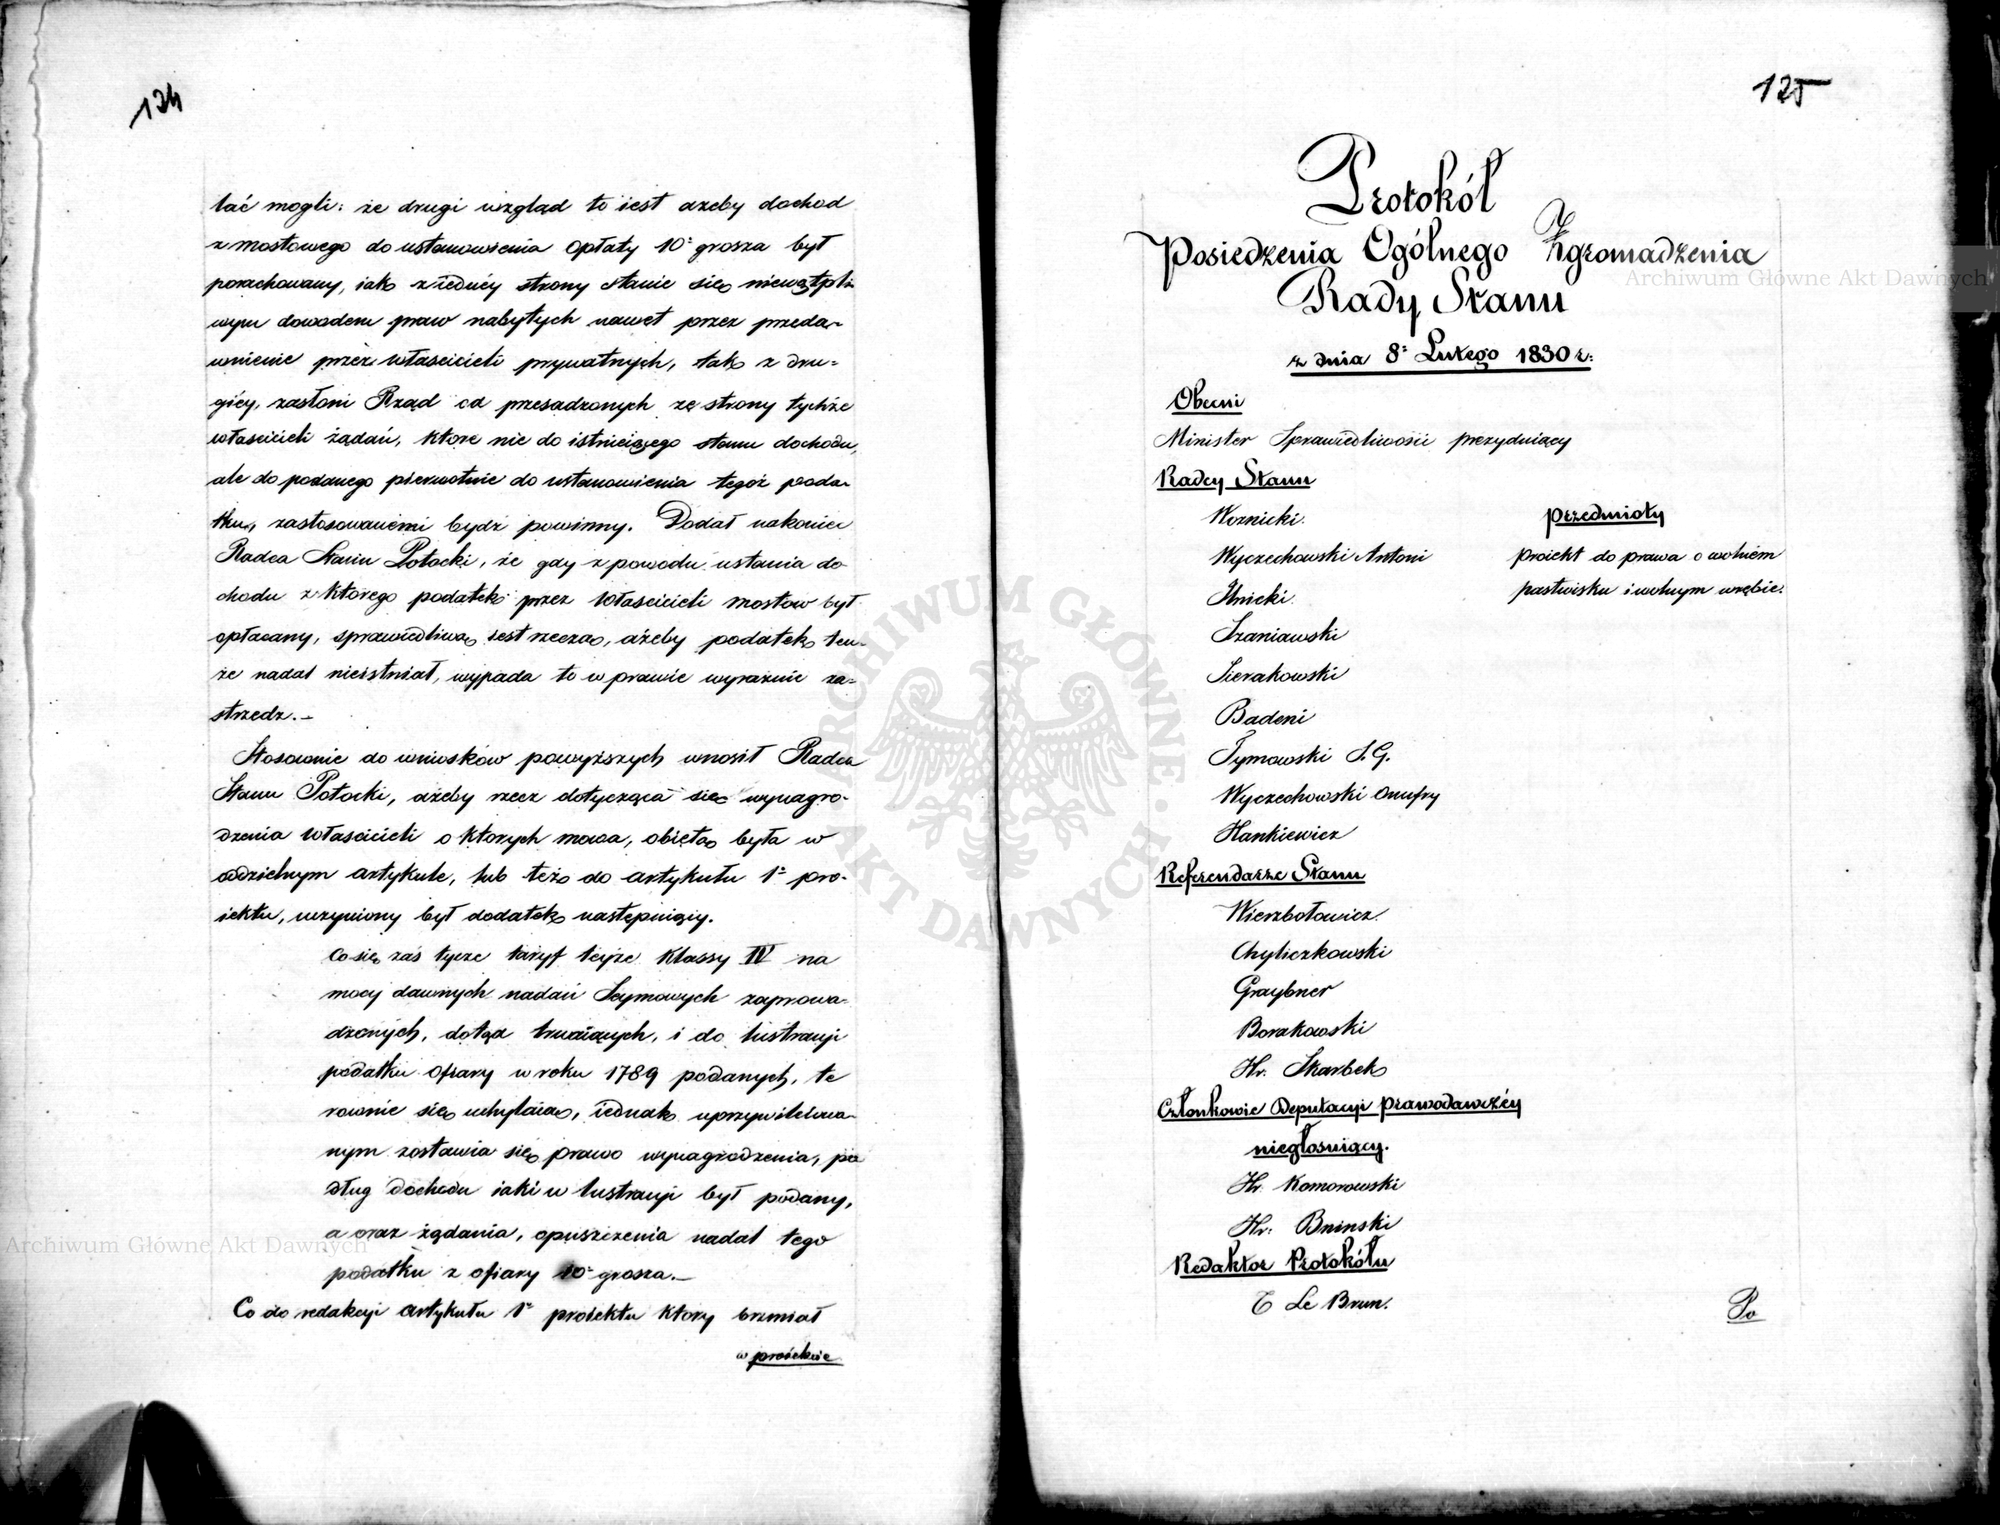 124
łać mogli: że drugi wzgląd to iest ażeby dochod
z mostowego do ustanowienia opłaty 10º grosza był
porachowany, iako z iednéy strony stanie się niewątpli-
wym dowodem praw nabytych nawet przez przeda-
wnienie przez właścicieli prywatnych, tak z dru-
giéy, zasłoni Rząd od przesadzonych ze strony tychże
właścicieli żądań, które nie do istnieiącego stanu dochodu,
ale do podanego pierwotnie do ustanowienia tegoż poda-
tku, zastosowanemi bydź powinny. Dodał nakoniec
Radca Stanu Potocki, że gdy z powodu ustania do-
chodu z którego podatek przez właścicieli mostów był
opłacany, sprawiedliwą iest rzeczą, ażeby podatek ten-
że nadal nieistniał, wypada to w prawie wyraźnie za-
strzedz.—
Stosownie do wniosków powyższych wnosił Radca
Stanu Potocki, ażeby rzecz dotycząca się wynagro-
dzenia właścicieli o których mowa, obiętą była w
oddzielnym artykule, lub też do artykułu 1º pro-
iektu, uczyniony był dodatek następuiący.
Co się zaś tycze taryf teyże Klassy IV na
mocy dawnych nadań Seymowych zaprowa-
dzonych, dotąd trwaiących, i do lustracyi
podatku ofiary w roku 1789 podanych, te
rownie się uchylaią, iednak uprzywilejowa-
nym zostawia się prawo wynagrodzenia, po-
dług dochodu iaki w lustracyi był podany,
a oraz żądania, opuszczenia nadal tego
podatku z ofiary 10º grosza.—
Co do redakcyi artykułu 1º proiektu który brzmiał
w proiekcie
125
Protokół
Posiedzenia Ogólnego Zgromadzenia
Rady Stanu
z dnia 8º Lutego 1830 r:
Obecni
Minister Sprawiedliwości prezyduiący
Radcy Stanu
Woznicki.
Przedmioty
Wyczechowski Antoni
proiekt do prawa o wolném
Ilnicki.
pastwisku i wolnym wrębie.
Szaniawski
Sierakowski
Badeni
Tymowski J. G.
Wyczechowski Onufry
Hankiewicz
Referendarze Stanu
Wierzbołowicz.
Chyliczkowski
Graybner
Borakowski
Hr. Skarbek
Członkowie Deputacyi Prawodawczéy
niegłosuiący.
Hr. Komorowski
Hr: Bninski
Redaktor Protokółu
T Le Brun.
Po
Archiwum Główne Akt Dawnych
Archiwum Główne Akt Dawnych
ARCHIWUM GŁÓWNE AKT DAWNYCH